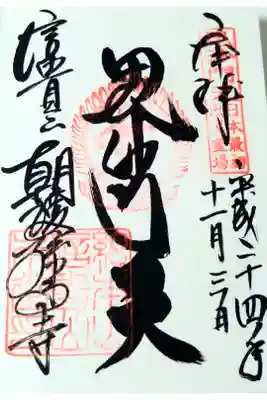 奉拝
平成二十四年
十一月三日
毘沙門天
信貴山
朝護孫子寺